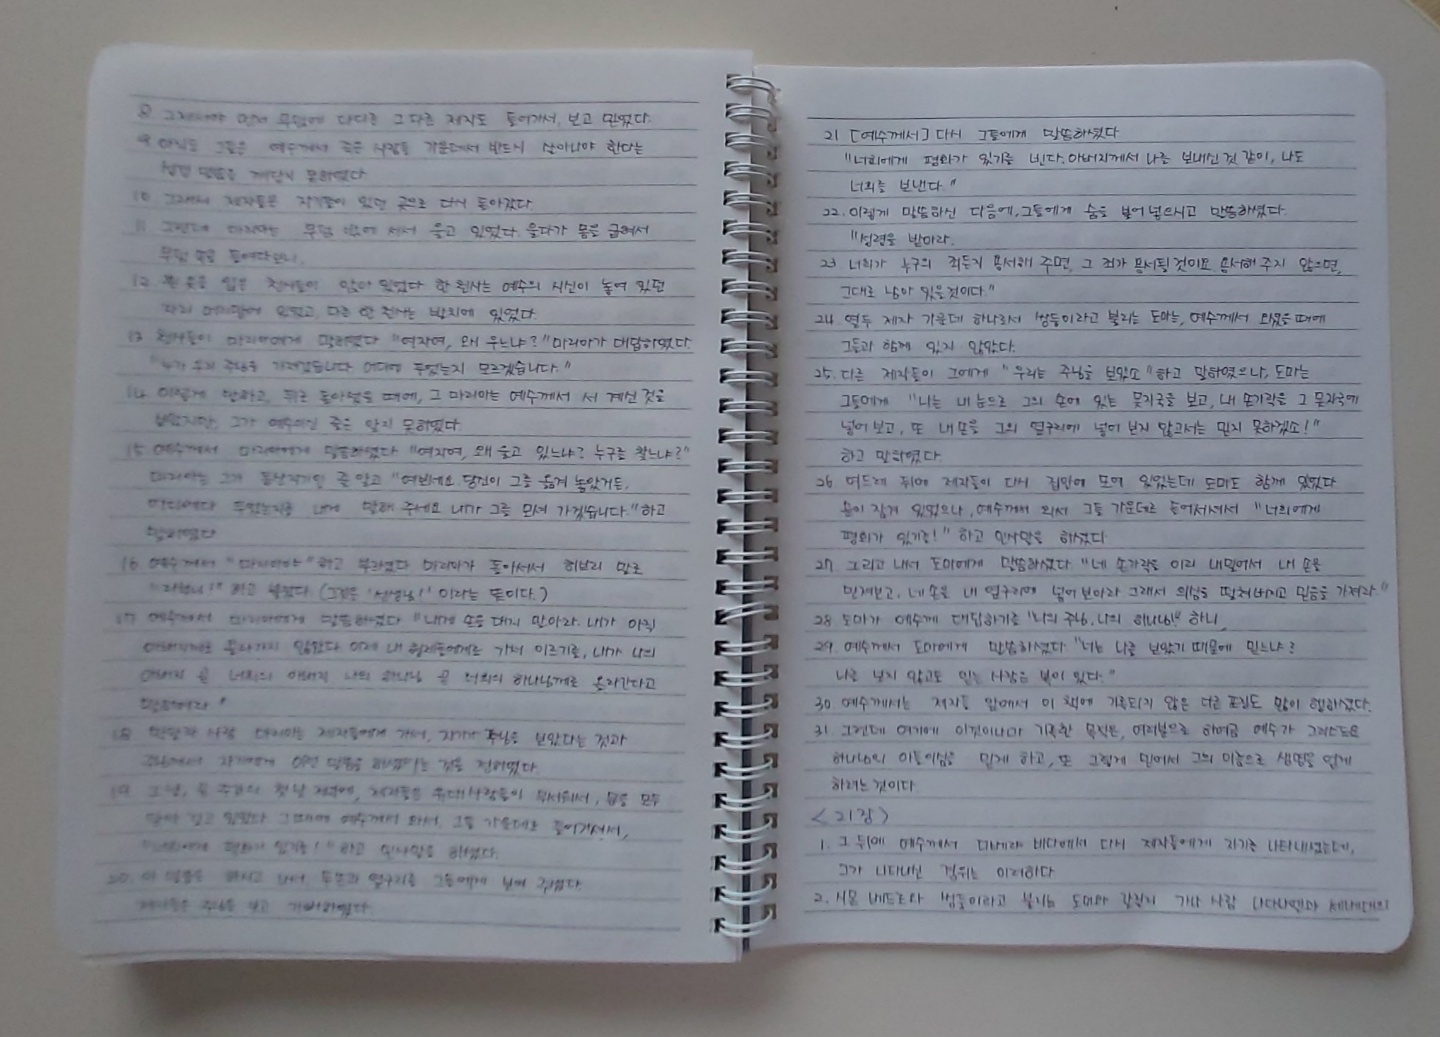 8 그제서야 먼저 무덤에 다다른 그 다른 제자도 들어가서, 보고 믿었다.
9 아직도 그들은 예수께서 죽은 사람들 가운데서 반드시 살아나야 한다는
성경 말씀을 깨닫지 못하였다
10 그래서 제자들은 자기들이 있던 곳으로 다시 돌아갔다.
11 그런데 마리아는 무덤 밖에 서서 울고 있었다. 울다가 몸을 굽혀서
무덤 속을 들여다보니,
12 흰 옷을 입은 천사들이 앉아 있었다 한 천사는 예수의 시신이 놓여 있던
자리 머리맡에 있었고, 다른 한 천사는 발치에 있었다
13 천사들이 마리아에게 말하였다 "여자여, 왜 우느냐?" 마리아가 대답하였다
"누가 우리 주님을 가져갔습니다 어디에 두었는지 모르겠습니다."
14 이렇게 말하고, 뒤로 돌아섰을 때에, 그 마리아는 예수께서 서 계신 것을
보았지만, 그가 예수이신 줄은 알지 못하였다.
15 예수께서 마리아에게 말씀하셨다 "여자여, 왜 울고 있느냐? 누구를 찾느냐?"
마리아는 그가 동산지기인 줄 알고 "여보세요. 당신이 그를 옮겨 놓았거든,
어디에다 두었는지를 내게 말해 주세요 내가 그를 모셔 가겠습니다." 하고
말하였다
16 예수께서 "마리아야" 하고 부르셨다 마리아가 돌아서서 히브리 말로
"라부니!" 하고 불렀다. (그것은 '선생님!' 이라는 뜻이다.)
17 예수께서 마리아에게 말씀하셨다 "내게 손을 대지 말아라. 내가 아직
아버지께로 올라가지 않았다 이제 내 형제들에게로 가서 이르기를, 내가 나의
아버지 곧 너희의 아버지 나의 하나님 곧 너희의 하나님께로 올라간다고
말하여라"
18 막달라 사람 마리아는 제자들에게 가서, 자기가 주님을 보았다는 것과
주님께서 자기에게 이런 말씀을 하셨다는 것을 전하였다.
19 그 날, 곧 주간의 첫 날 저녁에, 제자들은 유대 사람들이 무서워서, 문을 모두
닫아 걸고 있었다. 그 때에 예수께서 와서, 그들 가운데로 들어가셔서,
"너희에게 평화가 있기를!" 하고 인사말을 하셨다.
20. 이 말씀을 하시고 나서, 두 손과 옆구리를 그들에게 보여 주셨다.
제자들은 주님을 보고 기뻐하였다.
21 [예수께서] 다시 그들에게 말씀하셨다
"너희에게 평화가 있기를 빈다. 아버지께서 나를 보내신 것 같이, 나도
너희를 보낸다."
22. 이렇게 말씀하신 다음에, 그들에게 숨을 불어 넣으시고 말씀하셨다.
"성령을 받아라.
23 너희가 누구의 죄든지 용서해 주면, 그 죄가 용서될 것이요 용서해 주지 않으면,
그대로 남아 있을 것이다."
24. 열두 제자 가운데 하나로서 쌍둥이라고 불리는 도마는, 예수께서 오셨을 때에
그들과 함께 있지 않았다.
25. 다른 제자들이 그에게 "우리는 주님을 보았소" 하고 말하였으나, 도마는
그들에게 "나는 내 눈으로 그의 손에 있는 못자국을 보고, 내 손가락을 그 못자국에
넣어 보고, 또 내 손을 그의 옆구리에 넣어 보지 않고서는 믿지 못하겠소!"
하고 말하였다.
26 여드레 뒤에 제자들이 다시 집안에 모여 있었는데 도마도 함께 있었다
문이 잠겨 있었으나, 예수께서 와서 그들 가운데로 들어서셔서 "너희에게
평화가 있기를!" 하고 인사말을 하셨다
27 그리고 나서 도마에게 말씀하셨다 "네 손가락을 이리 내밀어서 내 손을
만져보고, 네 손을 내 옆구리에 넣어 보아라 그래서 의심을 떨쳐버리고 믿음을 가져라."
28 도마가 예수께 대답하기를 "나의 주님, 나의 하나님!" 하니,
29. 예수께서 도마에게 말씀하셨다 "너는 나를 보았기 때문에 믿느냐?
나를 보지 않고도 믿는 사람은 복이 있다."
30 예수께서는 제자들 앞에서 이 책에 기록되지 않은 다른 표징도 많이 행하셨다.
31 그런데 여기에 이것이나마 기록한 목적은, 여러분으로 하여금 예수가 그리스도요
하나님의 아들이심을 믿게 하고, 또 그렇게 믿어서 그의 이름으로 생명을 얻게
하려는 것이다
<21장>
1. 그 뒤에 예수께서 디베랴 바다에서 다시 제자들에게 자기를 나타내셨는데,
그가 나타내신 경위는 이러하다
2. 시몬 베드로와 쌍둥이라고 불리는 도마와 갈릴리 가나 사람 나다나엘과 세베대의